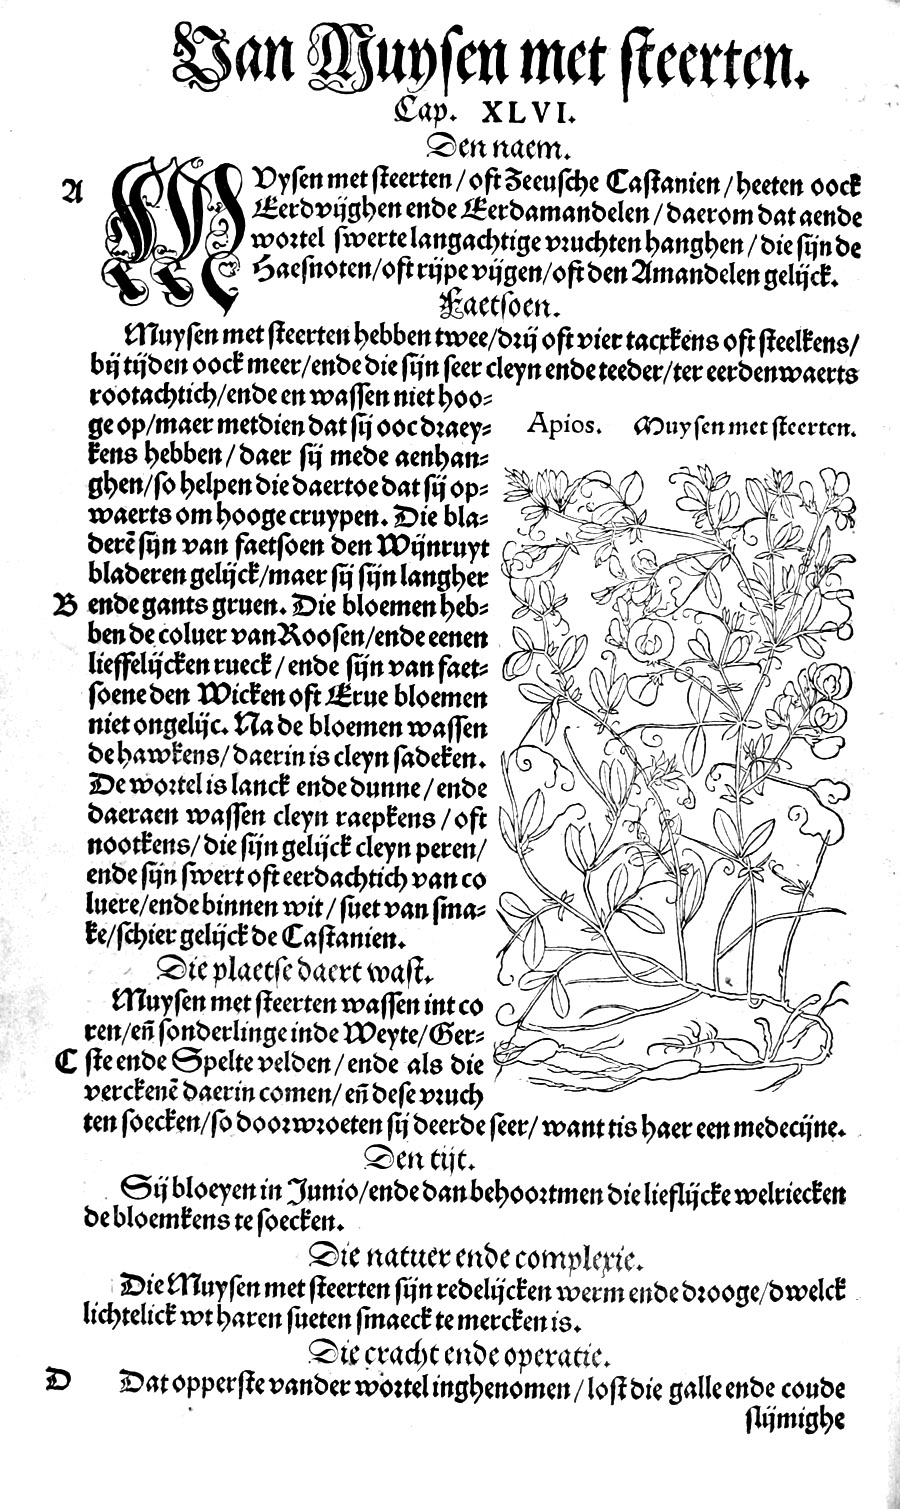 Van Muysen met steerten.
Cap. XLVI.
Den naem.
A
MVysen met steerten / oft Zeeusche Castanien / heeten oock
Eerdvijghen ende Eerdamandelen / daerom dat aende
wortel swerte langachtige vruchten hanghen / die sijn de
Haesnoten/oft rijpe vijgen/oft den Amandelen gelijck.
Faetsoen.
Muysen met steerten hebben twee/drij oft vier tacxkens oft steelkens/
bij tijden oock meer/ende die sijn seer cleyn ende teeder/ter eerdenwaerts
rootachtich/ende en wassen niet hoo⸗
ge op/maer metdien dat sij ooc draey⸗
kens hebben / daer sij mede aenhan⸗
ghen/so helpen die daertoe dat sij op⸗
waerts om hooge cruypen. Die bla⸗
derē sijn van faetsoen den Wijnruyt
bladeren gelijck/maer sij sijn langher
B ende gants gruen. Die bloemen heb⸗
ben de coluer van Roosen/ende eenen
lieffelijcken rueck / ende sijn van faet⸗
soene den Wicken oft Erue bloemen
niet ongelijc. Na de bloemen wassen
de hawkens/ daerin is cleyn sadeken.
De wortel is lanck ende dunne / ende
daeraen wassen cleyn raepkens / oft
nootkens/ die sijn gelijck cleyn peren/
ende sijn swert oft eerdachtich van co
luere/ende binnen wit / suet van sma⸗
ke/schier gelijck de Castanien.
Apios. Muysen met steerten.
Die plaetse daert wast.
Muysen met steerten wassen int co
ren/eñ sonderlinge inde Weyte/Ger⸗
C ste ende Spelte velden / ende als die
verckenē daerin comen/ eñ dese vruch
ten soecken/so doorwroeten sij deerde seer/ want tis haer een medecijne.
Den tijt.
Sij bloeyen in Junio/ende dan behoortmen die lieflijcke welriecken
de bloemkens te soecken.
Die natuer ende complexie.
Die Muysen met steerten sijn redelijcken werm ende drooge/dwelck
lichtelick wt haren sueten smaeck te mercken is.
Die cracht ende operatie.
D Dat opperste vander wortel inghenomen / lost die galle ende coude
slijmighe